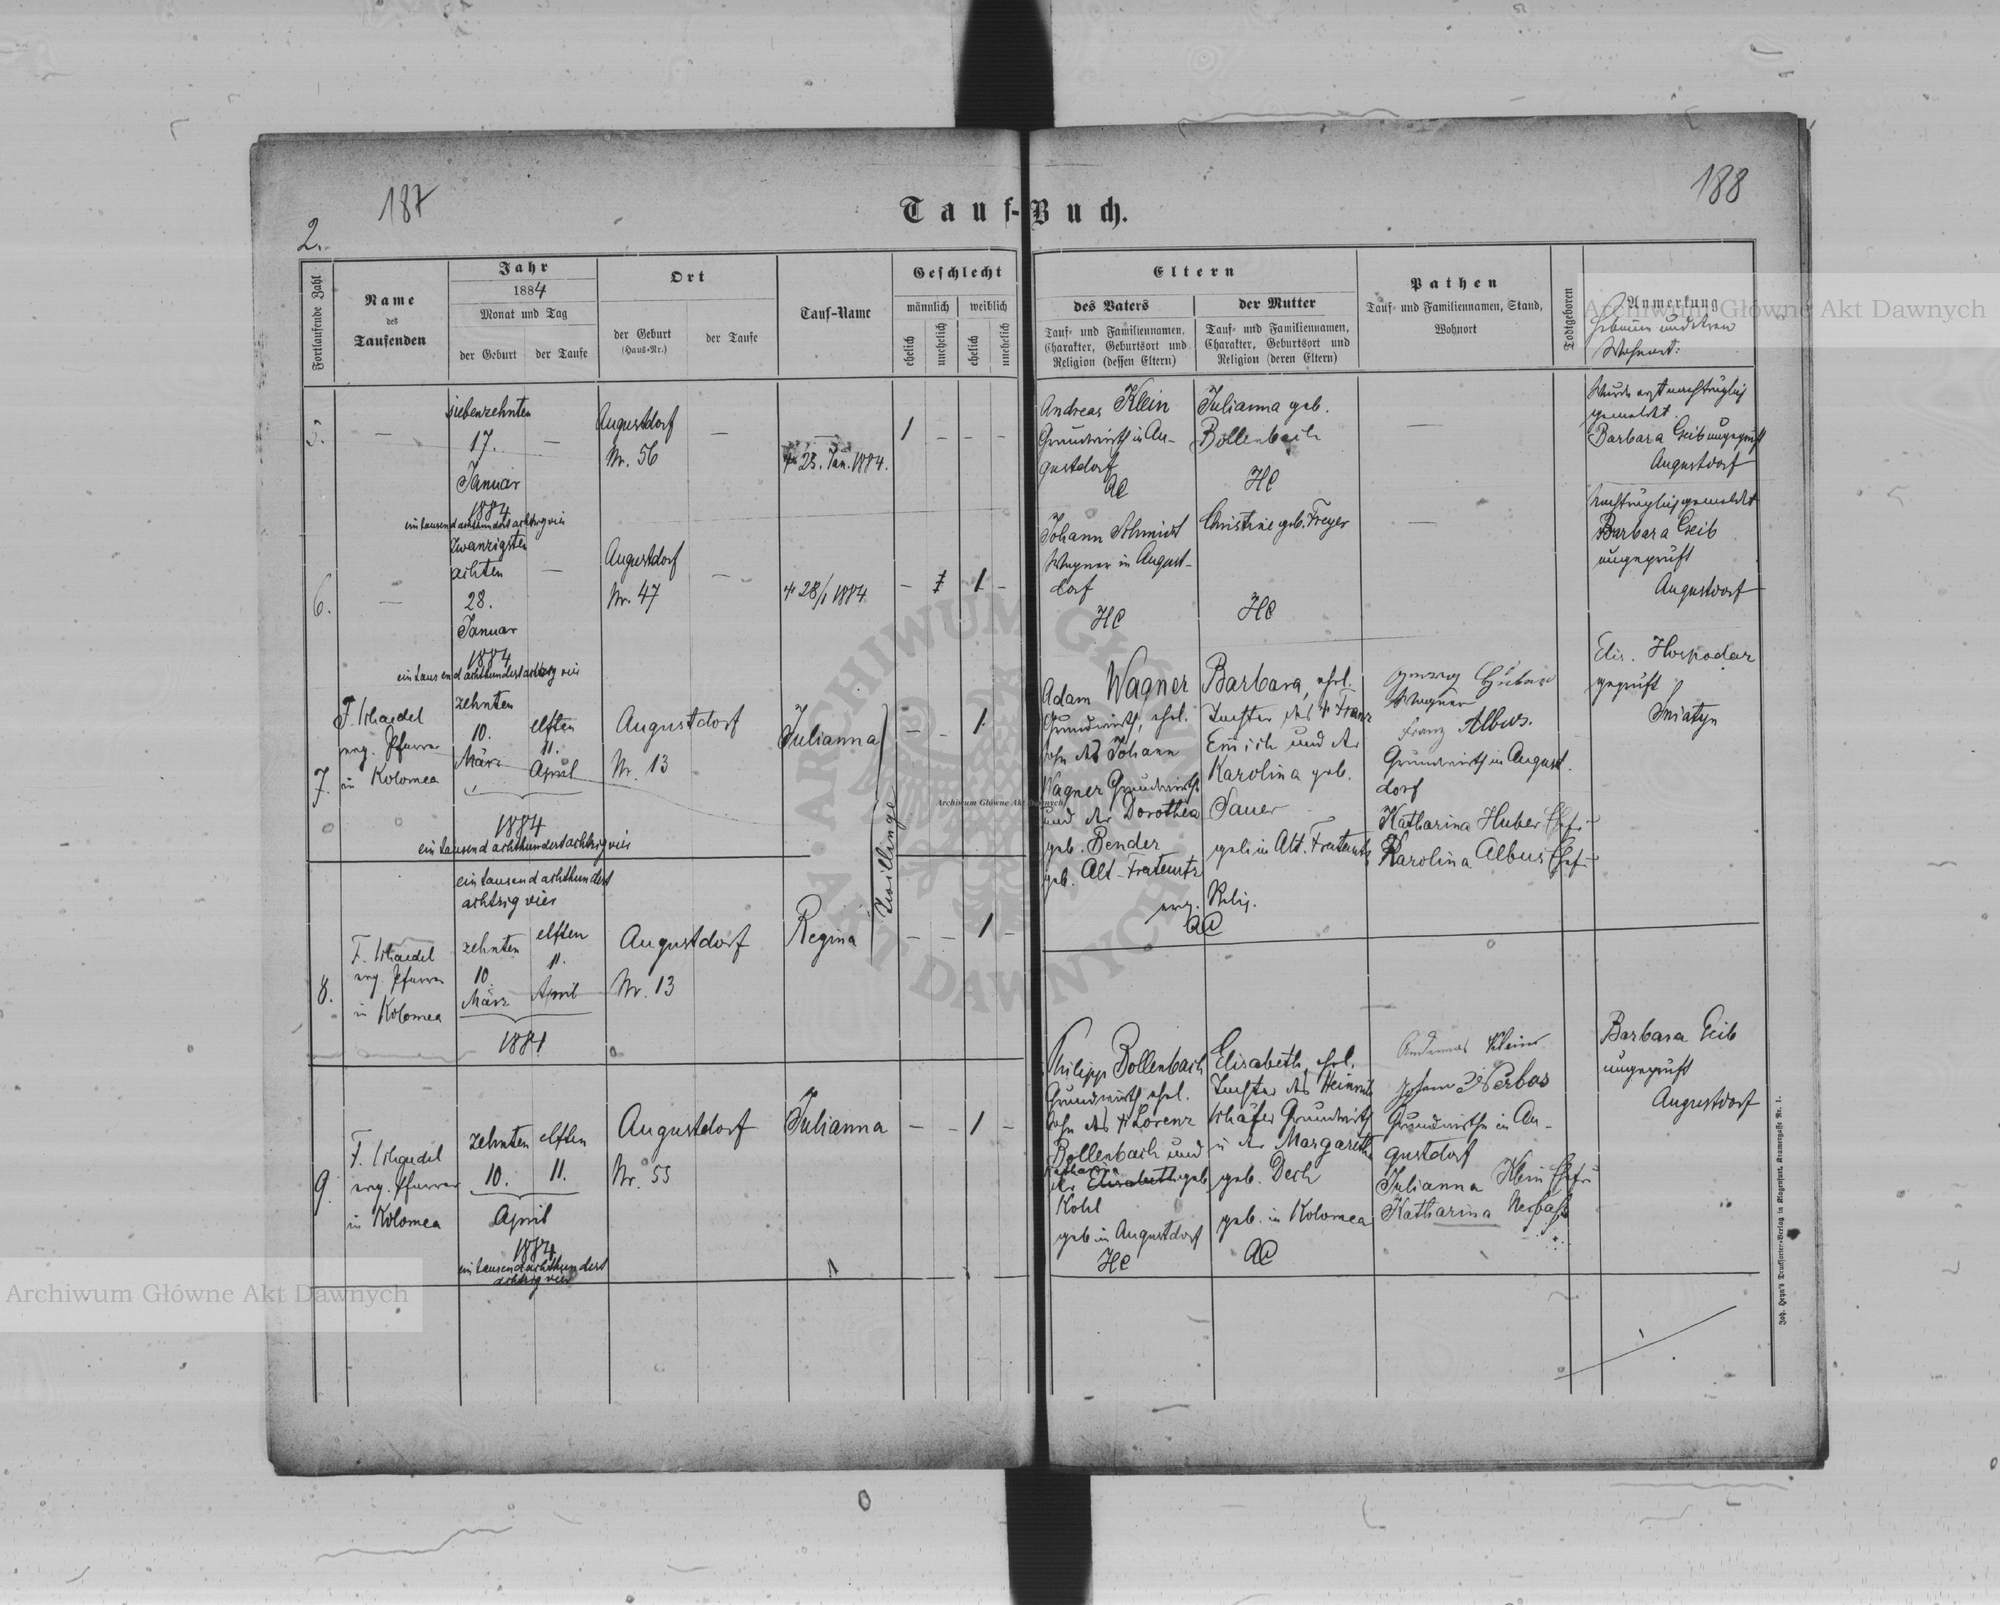 187
188
Tauf-Buch.
2.
Fortlaufende Zahl
Name
des
Taufenden
Jahr
1884
Monat und Tag
der Geburt
der Taufe
Ort
der Geburt
(Haus-Nr.)
der Taufe
Tauf-Name
Geschlecht
männlich
weiblich
ehelich
unehelich
ehelich
unehelich
Eltern
des Vaters
Tauf- und Familiennamen,
Charakter, Geburtsort und
Religion (dessen Eltern)
der Mutter
Tauf- und Familiennamen,
Charakter, Geburtsort und
Religion (deren Eltern)
Pathen
Tauf- und Familiennamen, Stand,
Wohnort
Todtgeboren
Anmerkung
Wohnort:
5.
siebenzehnten
17.
Januar
1884
eintausendachthundertachtzigvier
Augustdorf
Nr. 56
23. Jan. 1884.
1
Andreas Klein
Grundwirth in Au-
gustdorf
AC
Julianna geb.
Bollenbach
HC
Wurde erst nachträglich
gemeldet
Barbara Geib ungeprüft
Augustdorf
6.
zwanzigsten
achten
28.
Januar
1884
eintausendachthundertachtzigvier
Augustdorf
Nr. 47
28/1 1884
1
Johann Schmidt
Wagner in August-
dorf
HC
Christine geb. Freyer
HC
nachträglich gemeldet
Barbara Geib
ungeprüft
Augustdorf
7.
F. Schaedel
evg. Pfarrer
in Kolomea
zehnten
10.
März
elften
11.
April
1884
eintausendachthundertachtzigvier
Augustdorf
Nr. 13
Julianna
Zwillinge
1
Adam Wagner
Grundwirth, ehel.
Sohn des Johann
Wagner Grundwirth
und der Dorothea
geb. Bender
geb. Alt-Fratautz
Barbara, ehel.
Tochter des Franz
Emich und der
Karolina geb.
Sauer
geb. in Alt-Fratautz
evg. Relig.
AC
Wagner
Franz Albus.
Grundwirth in August-
dorf
Katharina Huber Ehefr.
Karolina Albus Ehefr.
Elis. Hospodar
geprüft
Sniatyn
8.
F. Schaedel
evg. Pfarrer
in Kolomea
eintausendachthundert
achtzigvier
zehnten
10.
März
elften
11.
April
1884
Augustdorf
Nr. 13
Regina
1
9.
F. Schaedel
evg. Pfarrer
in Kolomea
zehnten
10.
elften
11.
April
1884
eintausendachthundert
achtzigvier
Augustdorf
Nr. 55
Julianna
1
Philipp Bollenbach
Grundwirth ehel.
Sohn des Lorenz
Bollenbach und
der Elisabeth geb.
Kohl
geb. in Augustdorf
HC
Elisabeth, ehel.
Tochter des Heinrich
Schäfer Grundwirth
u der Margaretha
geb. Dech
geb. in Kolomea
AC
Andreas Klein
Johann Nerbas
Grundwirthe in Au-
gustdorf
Julianna Klein Ehefr.
Katharina Nerbas
Barbara Geib
ungeprüft
Augustdorf
Joh. Heyn's Druksorten-Verlag in Klagenfurt, Kramergasse Nr. 1.
Archiwum Główne Akt Dawnych
Archiwum Główne Akt Dawnych
Archiwum Główne Akt Dawnych
ARCHIWUM GŁÓWNE AKT DAWNYCH